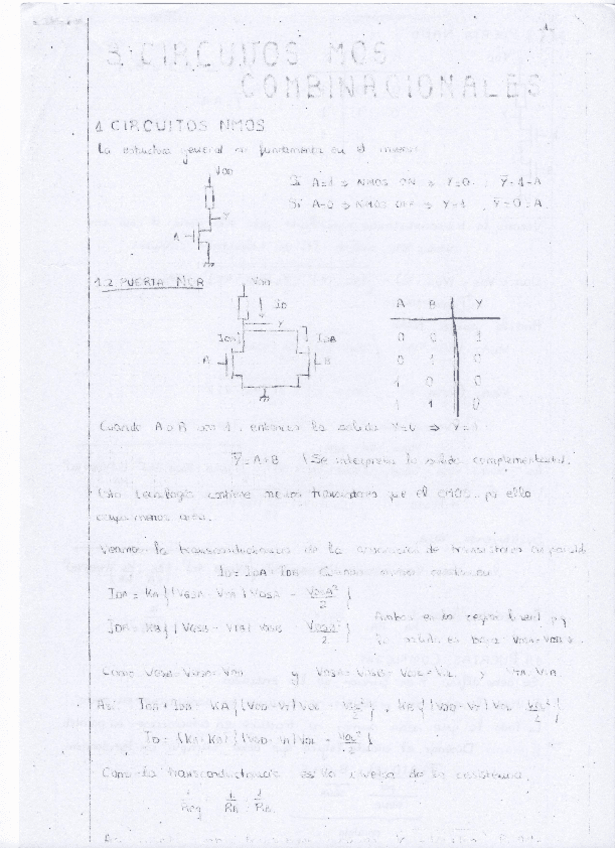 3 CIRCUITOS MOS
COMBINACIONALES
1 CIRCUITOS NMOS
La estructura general se fundamenta en el inversor
VDD
Si A=1 => NMOS ON => Y=0 ; Y̅=1=A
Si A=0 => NMOS OFF => Y=1 ; Y̅=0=A
Y
A
1.2 PUERTA NOR
VDD
iD
Y
IDA
A
B
A B Y
0 0 1
0 1 0
1 0 0
1 1 0
Cuando A o B son 1, entonces la salida Y=0 => Y̅=1
Y̅=A+B (Se interpreta la salida complementada).
Esta tecnología contiene menos transistores que el CMOS, por ello
ocupa menos área.
Veamos la transconductancia de la asociación de transistores en paralelo
ID = IDA + IDB Cuando ambos conducen
IDA = KA{(VGSA - VTA) VDSA - VDSA²/2}
IDB = KB{(VGSB - VTB) VDSB - VDSB²/2}
Ambos en la región lineal
la salida es baja
Como VGSA = VGSB = VDD y VDSA = VDSB = VOL y
Así IDA + IDB = KA{(VDD - VT) VOL - VOL²/2} + KB{(VDD - VT) VOL - VOL²/2}
ID = (KA + KB){(VDD - VT) VOL - VOL²/2}
Como la transconductancia es la inversa de la resistencia.
1/Req = 1/RA + 1/RB